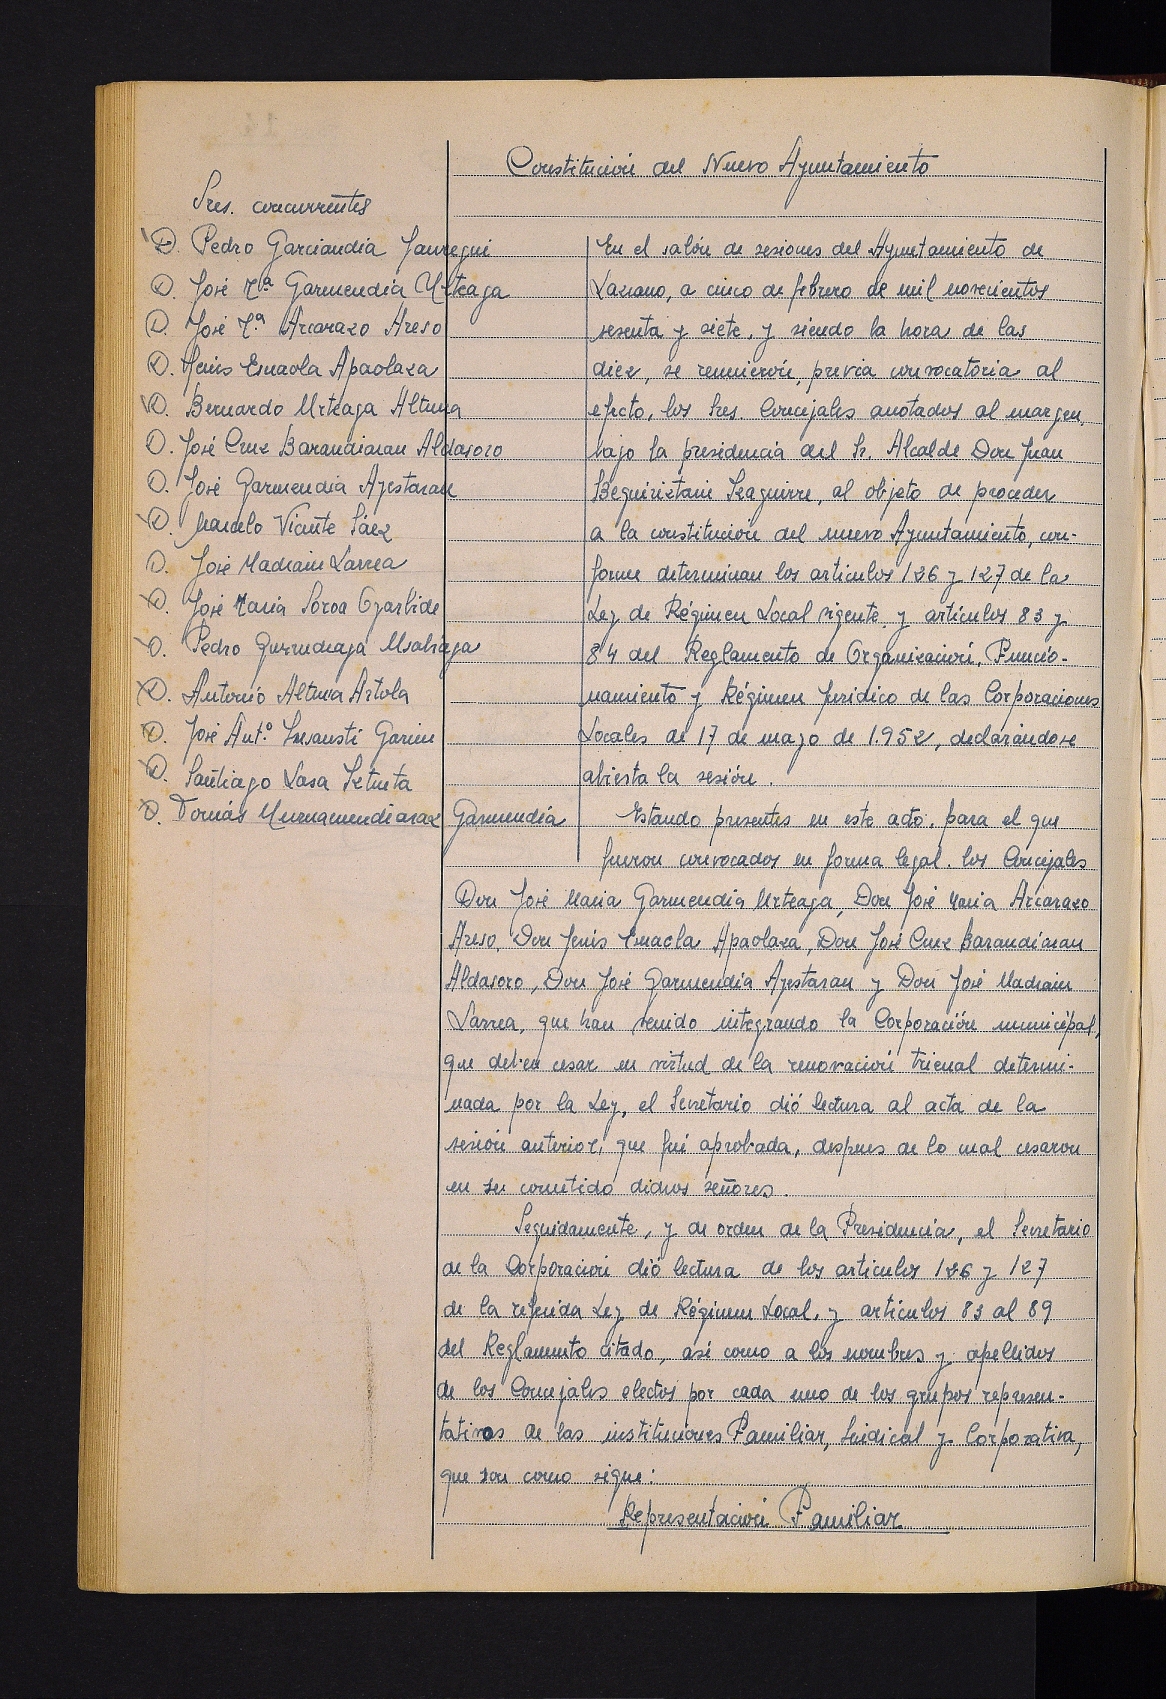 Constitución del Nuevo Ayuntamiento
Sres. concurrentes
D. Pedro Garciandia Jauregui
D. José Mª Garmendia Urteaga
D. José Mª Arcarazo Areso
D. Jenis Esnaola Apaolaza
D. Bernardo Urteaga Altuna
D. José Cruz Barandiaran Aldasoro
D. José Garmendia Ayestaran
D. Marcelo Vicente Sáez
D. José Madrain Larrea
D. José Maria Soroa Oyarbide
D. Pedro
D. Antonio Altuna Artola
D. José Antº Insausti Garin
D. Santiago Lasa Iztueta
D. Tomás Murnamendiaraz Garmendia
En el salón de sesiones del Ayuntamiento de
Lazcano, a cinco de febrero de mil novecientos
sesenta y siete, y siendo la hora de las
diez, se reunieron, previa convocatoria al
efecto, los Sres. Concejales anotados al margen,
bajo la presidencia del Sr. Alcalde Don Juan
Beguiristain Izaguirre, al objeto de proceder
a la constitución del nuevo Ayuntamiento, con-
forme determinan los articulos 126 y 127 de la
Ley de Régimen Local vigente y artículos 83 y
84 del Reglamento de Organización, Funcio-
namiento y Régimen Juridico de las Corporaciones
Locales de 17 de mayo de 1.952, declarándose
abierta la sesión.
Estando presentes en este acto, para el que
fueron convocados en forma legal, los Concejales
Don José Maria Garmendia Urteaga, Don José Maria Arcarazo
Areso, Don Jenis Esnaola Apaolaza, Don José Cruz Barandiaran
Aldasoro, Don José Garmendia Ayestaran y Don José Madrain
Larrea, que han venido integrando la Corporación municipal,
que deben cesar en virtud de la renovación trienal determi-
nada por la Ley, el Secretario dió lectura al acta de la
sesión anterior, que fué aprobada, despues de lo cual cesaron
en su cometido dichos señores.
Seguidamente, y de orden de la Presidencia, el Secretario
de la Corporación dió lectura de los articulos 126 y 127
de la referida Ley de Régimen Local, y articulos 83 al 89
del Reglamento citado, así como a los nombres y apellidos
de los Concejales electos por cada uno de los grupos represen-
tativos de las instituciones Familiar, Sindical y Corporativa,
que son como sigue:
Representación Familiar